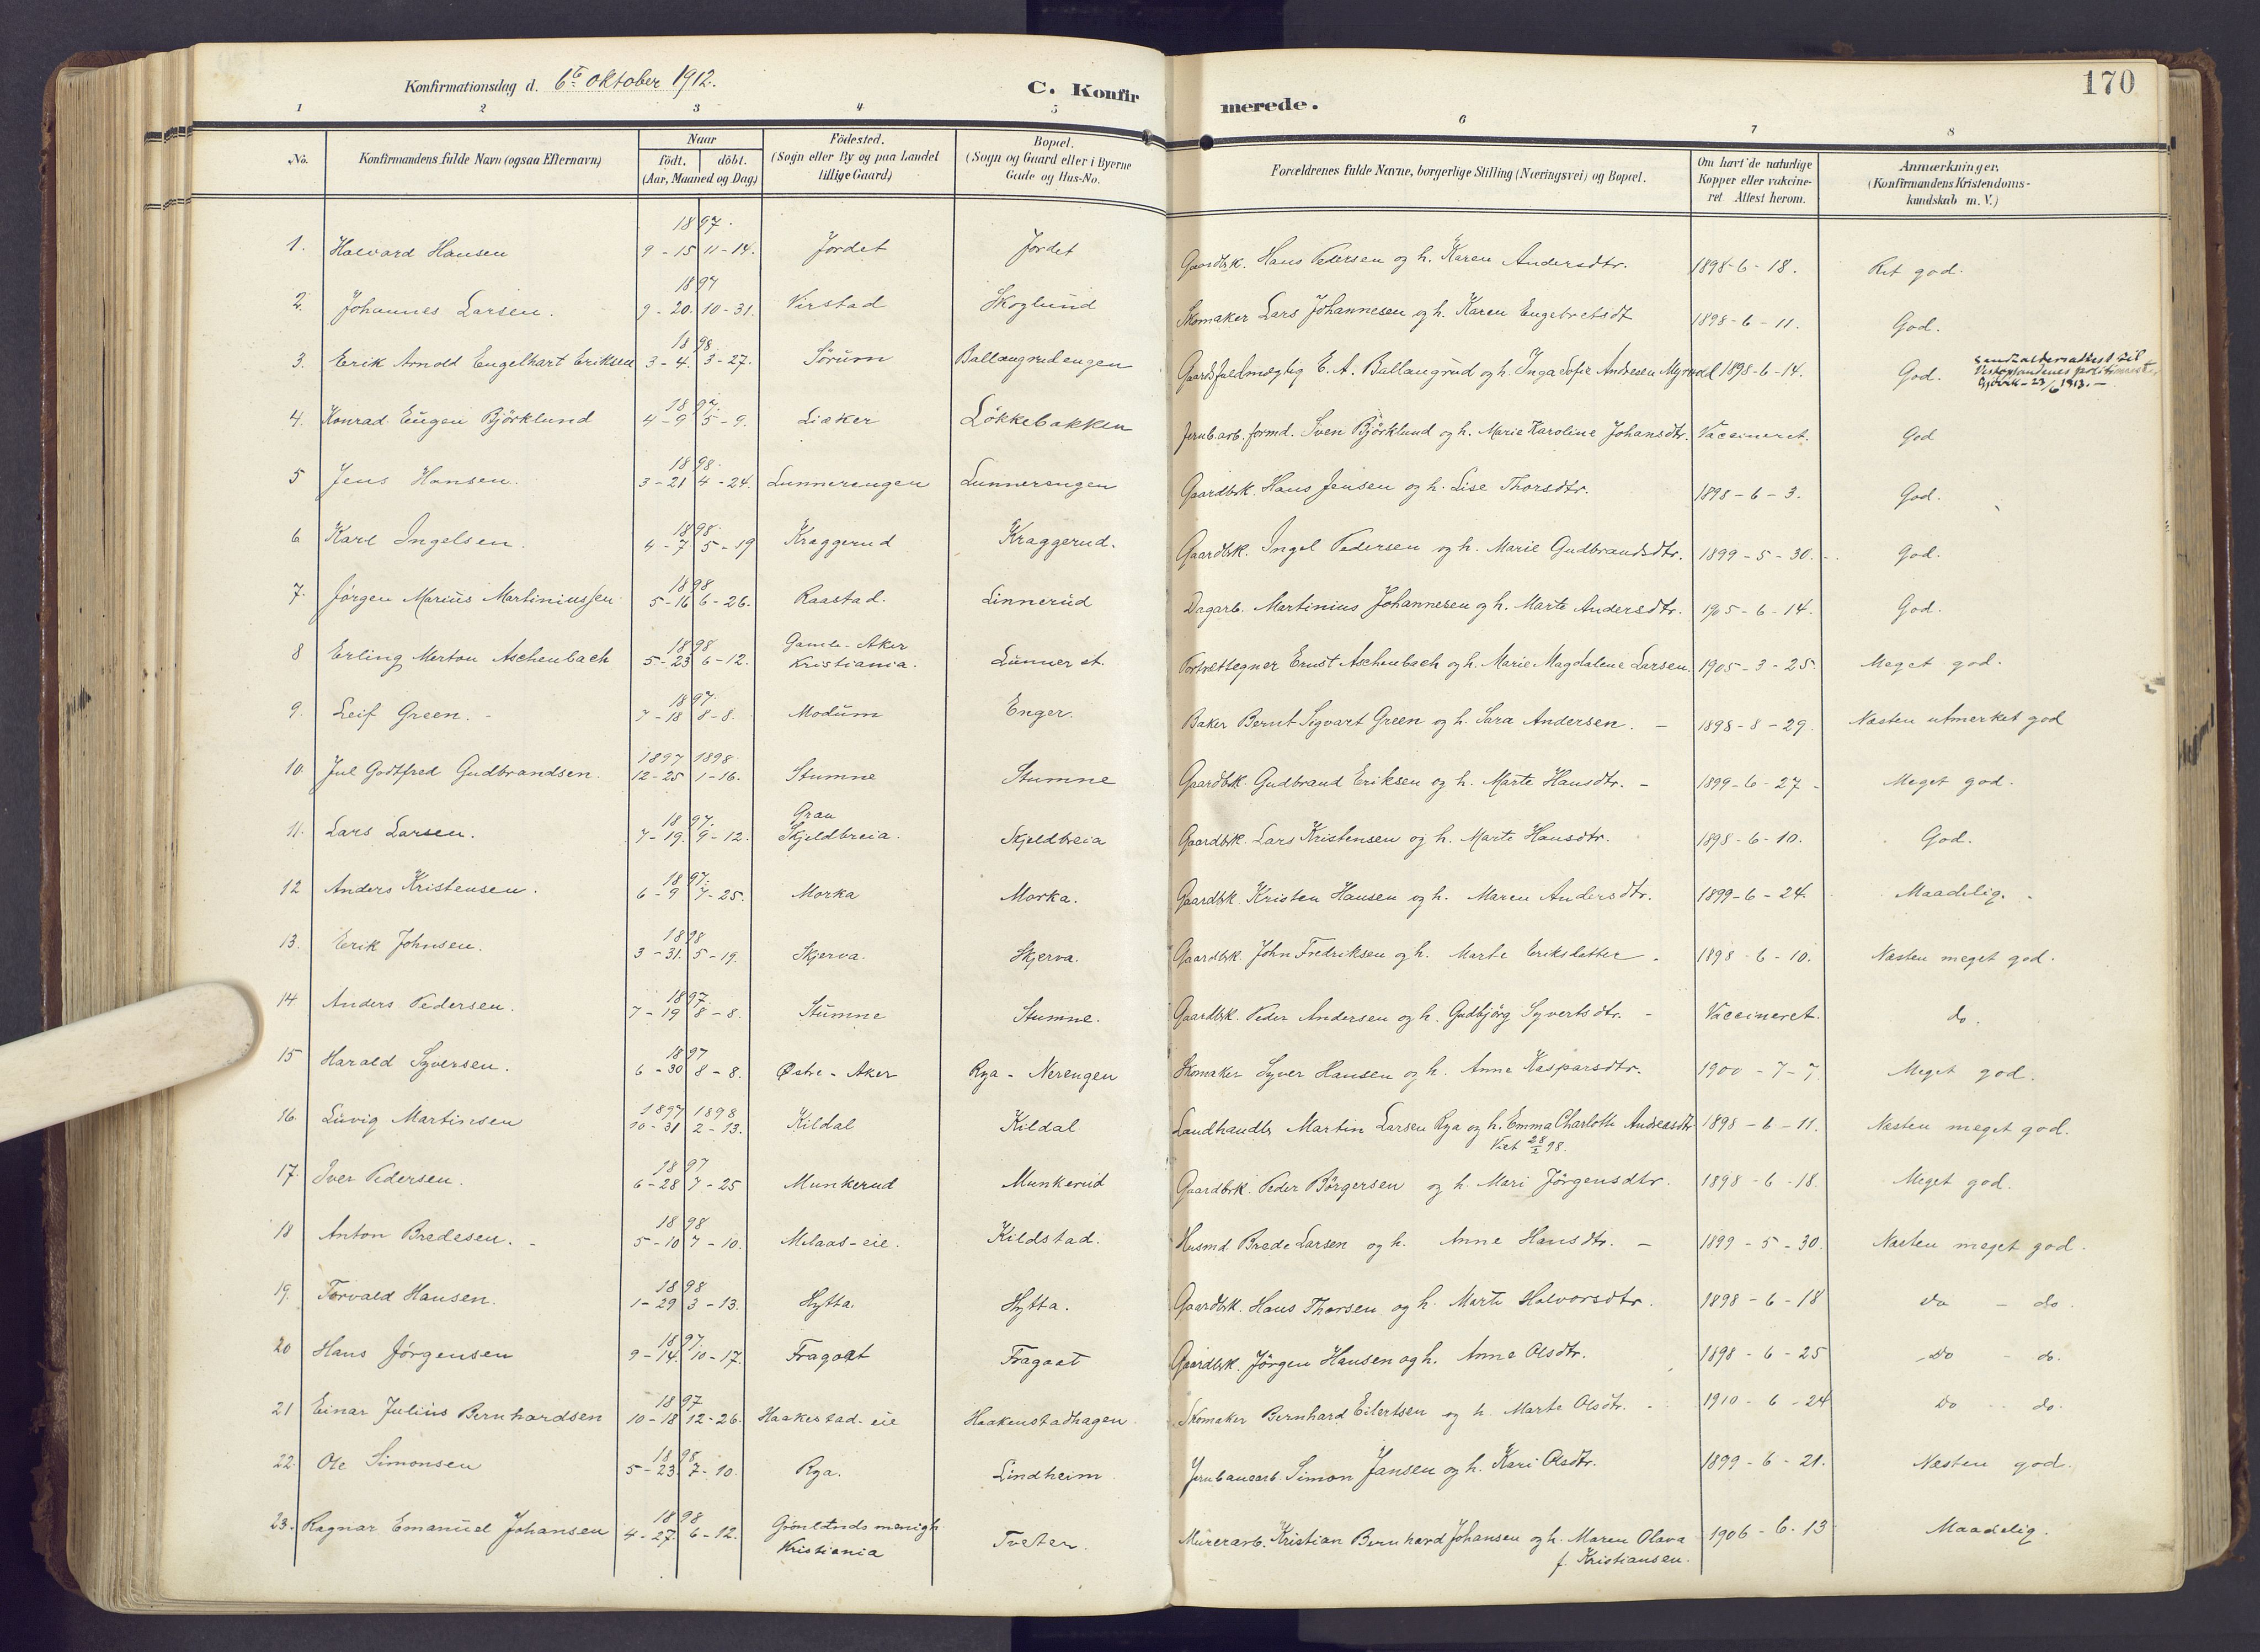 Konfirmationsdag d. 6te oktober 1912. C. Konfirmerede. 170
1 2 3 4 5 6 7 8
No. Konfirmandens fulde Navn (ogsaa Efternavn) Naar födt. döbt. (Aar, Maaned og Dag) Födested. (Sogn eller By og paa Landet tillige Gaard) Bopæl. (Sogn og Gaard eller i Byerne Gade og Hus-No. Forældrenes fulde Navne, borgerlige Stilling (Næringsvei) og Bopæl. Om havt de naturlige Kopper eller vakcineret Attest herom. Anmærkninger. (Konfirmandens Kristendomskundskab m. V.)
1897.
1. Halvard Hansen 9-15 11-14. Jordet Jordet Gaardbrk. Hans Pedersen og h. Karen Andersdtr. 1898-6-18. Ret god.
1897
2. Johannes Larsen. 9-20. 10-31. Virstad Skoglund Skomaker Lars Johannesen og h. Karen Engebretsdt 1898-6-11. God.
1898.
3. Erik Arnold Engelhart Eriksen 3-4. 3-27. Sörum Ballangrudengen Gaardsfuldmægtig E. A. Ballangrud og h. Inga Sofie Andresen Myrvold 1898-6-14. God. Sendt attest til Vestoplandenes politimester Gjövik 23/6 1913.-
1897.
4. Konrad Eugen Björklund 4-9 5-9. Liaker Lökkebakken Jernb.arb.formd. Sven Björklund og h. Marie Karoline Johansdtr. Vaccineret. God
1898.
5 Jens Hansen. 3-21 4-24. Lunnerengen Lunnerengen Gaardbrk. Hans Jensen og h. Lise Thorsdtr. 1898-6-3. God.
1898.
6 Karl Ingelsen. 4-7. 5-19 Kraggerud Kraggerud. Gaardbk. Ingel Pedersen og h. Marie Gudbrandsdtr. 1899-5-30.- God.
1898
7. Jørgen Marius Martiniussen 5-16 6-26. Raastad. Linnerud Dagarb. Martinius Johannesen og h. Marte Andersdtr. 1905-6-14. God.
1898 Gamle-Aker
8 Erling Merton Aschenbach 5-23 6-12. Kristiania. Lunner st. Portrættegner Ernst Aschenbach og h. Marie Magdalene Larsen. 1905-3-25. Meget god.
1897.
9. Leif Green.- 7-18 8-8. Modum Enger. Baker Bernt Sigvart Green og h. Sara Andersen.- 1898-8-29. Næsten utmerket god
1897 1898
10. Jul Godtfred Gudbrandsen. 12-25 1-16. Stumne Stumne Gaardbk. Gudbrand Eriksen og h. Marte Hansdtr.- 1899-6-27- Meget god.
1897. Gran
11. Lars Larsen. 7-19. 9-12. Skjeldbreia. Skjeldbreia Gaardbk. Lars Kristensen og h. Marte Hansdtr. 1898-6-10. God.
1897.
12 Anders Kristensen. 6-9 7-25. Morka Morka. Gaardbk. Kristen Hansen og h. Maren Andersdtr. 1899-6-24. Maadelig.
1898
13. Erik Johnsen. 3-31. 5-19. Skjerva. Skjerva. Gaardbk. John Fredriksen og h. Marte Eriksdatter. 1898-6-10. Næsten meget god.
1897.
14 Anders Pedersen. 7-19 8-8. Stumne Stumne. Gaardbk. Peder Andersen og h. Gudbjörg Syvertsdtr.- Vaccineret. do.
1897
15 Harald Syversen. 6-30 8-8. Østre-Aker Rya-Nerengen Skomaker Syver Hansen og h. Anne Kasparsdtr. 1900-7-7. Meget god.
1897 1898
16 Luvig Martinsen 10-31 2-13. Kildal Kildal Landhandler Martin Larsen Rya og h. Emma Charlotte Andreasdtr 1898-6-11. Næsten meget god.
Viet 28/2 98.
1897
17. Iver Pedersen. 6-28 7-25 Munkerud Munkerud Gaardbrk. Peder Börgersen og h. Mari Jörgensdtr. 1898-6-18. Meget god.
1898
18 Anton Bredesen.- 5-10 7-10. Melaas-eie. Kildstad. Husmd. Brede Larsen og h. Anne Hansdtr.- 1899-5-30. Næsten meget god.
1898
19. Torvald Hansen. 1-29 3-13. Hytta. Hytta. Gaardbk. Hans Thorsen og h. Marte Halvorsdtr. 1898-6-18 do - do.
1897.
20 Hans Jörgensen 9-14. 10-17. Fragaat Fragaat Gaardbk. Jörgen Hansen og h. Anne Olsdtr. 1898-6-25 do - do.
1897
21 Einar Julius Bernhardsen 10-18 12-26. Haakestad-eie Haakenstadhagen Skomaker Bernhard Eilertsen og h. Marte Olsdtr.- 1910-6-24 do - do.
1898
22. Ole Simonsen 5-23. 7-10. Rya. Lindheim Jernbanearb. Simon Jansen og h. Kari Olsdtr. 1899-6-21. Næsten god.
1898 Grönlands menigh.
23. Ragnar Emanuel Johansen 4-27. 6-12. Kristiania Tveter. Murerarb. Kristian Bernhard Johansen og h. Maren Olava 1906-6-13 Maadelig.
f. Kristiansen.